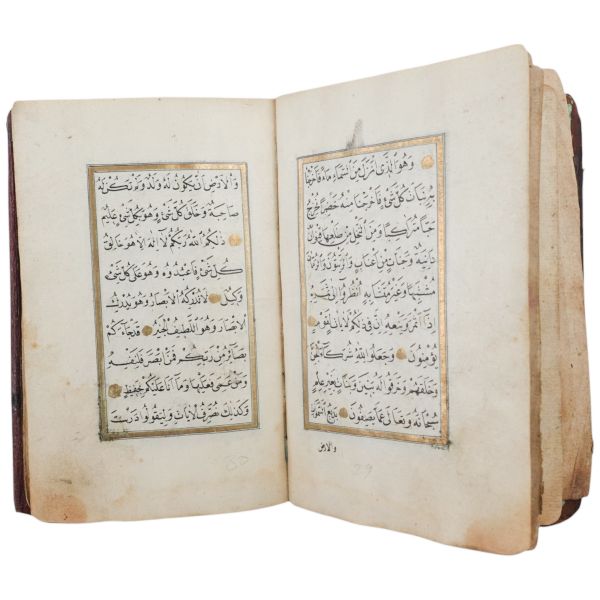 وَهُوَ الَّذِي اَنْزَلَ مِنَ السَّمَاءِ مَاءً فَاَخْرَجْنَا
بِهِ نَبَاتَ كُلِّ شَيْءٍ فَاَخْرَجْنَا مِنْهُ خَضِرًا نُخْرِجُ
مِنْهُ حَبًّا مُتَرَاكِبًا وَمِنَ النَّخْلِ مِنْ طَلْعِهَا قِنْوَانٌ
دَانِيَةٌ وَجَنَّاتٍ مِنْ اَعْنَابٍ وَالزَّيْتُونَ وَالرُّمَّانَ
مُشْتَبِهًا وَغَيْرَ مُتَشَابِهٍ اُنْظُرُوا اِلَى ثَمَرِهِ
اِذَا اَثْمَرَ وَيَنْعِهِ اِنَّ فِي ذَلِكُمْ لَاٰيَاتٍ لِقَوْمٍ
يُؤْمِنُونَ وَجَعَلُوا لِلّٰهِ شُرَكَاءَ الْجِنَّ
وَخَلَقَهُمْ وَخَرَقُوا لَهُ بَنِينَ وَبَنَاتٍ بِغَيْرِ عِلْمٍ
سُبْحَانَهُ وَتَعَالَى عَمَّا يَصِفُونَ بَدِيعُ السَّمٰوَاتِ
والارض
79
وَالْاَرْضِ اَنّٰى يَكُونُ لَهُ وَلَدٌ وَلَمْ تَكُنْ لَهُ
صَاحِبَةٌ وَخَلَقَ كُلَّ شَيْءٍ وَهُوَ بِكُلِّ شَيْءٍ عَلِيمٌ
ذٰلِكُمُ اللّٰهُ رَبُّكُمْ لَا اِلٰهَ اِلَّا هُوَ خَالِقُ
كُلِّ شَيْءٍ فَاعْبُدُوهُ وَهُوَ عَلَى كُلِّ شَيْءٍ
وَكِيلٌ لَا تُدْرِكُهُ الْاَبْصَارُ وَهُوَ يُدْرِكُ
الْاَبْصَارَ وَهُوَ اللَّطِيفُ الْخَبِيرُ قَدْ جَاءَكُمْ
بَصَائِرُ مِنْ رَبِّكُمْ فَمَنْ اَبْصَرَ فَلِنَفْسِهِ
وَمَنْ عَمِيَ فَعَلَيْهَا وَمَا اَنَا عَلَيْكُمْ بِحَفِيظٍ
وَكَذٰلِكَ نُصَرِّفُ الْاٰيَاتِ وَلِيَقُولُوا دَرَسْتَ
80